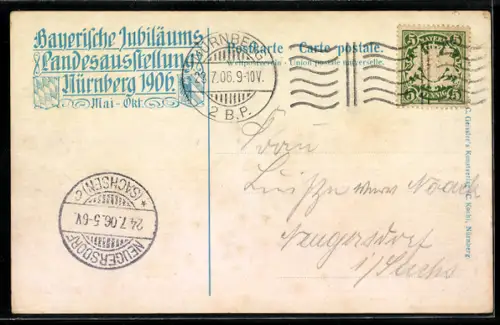 Bayerische Jubiläums
Landesausstellung
Nürnberg 1906.
Mai-Okt.
Postkarte - Carte postale.
Weltpostverein - Union postale universelle.
NÜRNBERG
23.7.06.9-10V.
2 B.P.
BAYERN
5 5
5 PFENNIG 5
Frau
Luise verw Noack
Neugersdorf
i/Sachs
NEUGERSDORF
24.7.06.5-6V.
* (SACHSEN) C
Nürnberg.